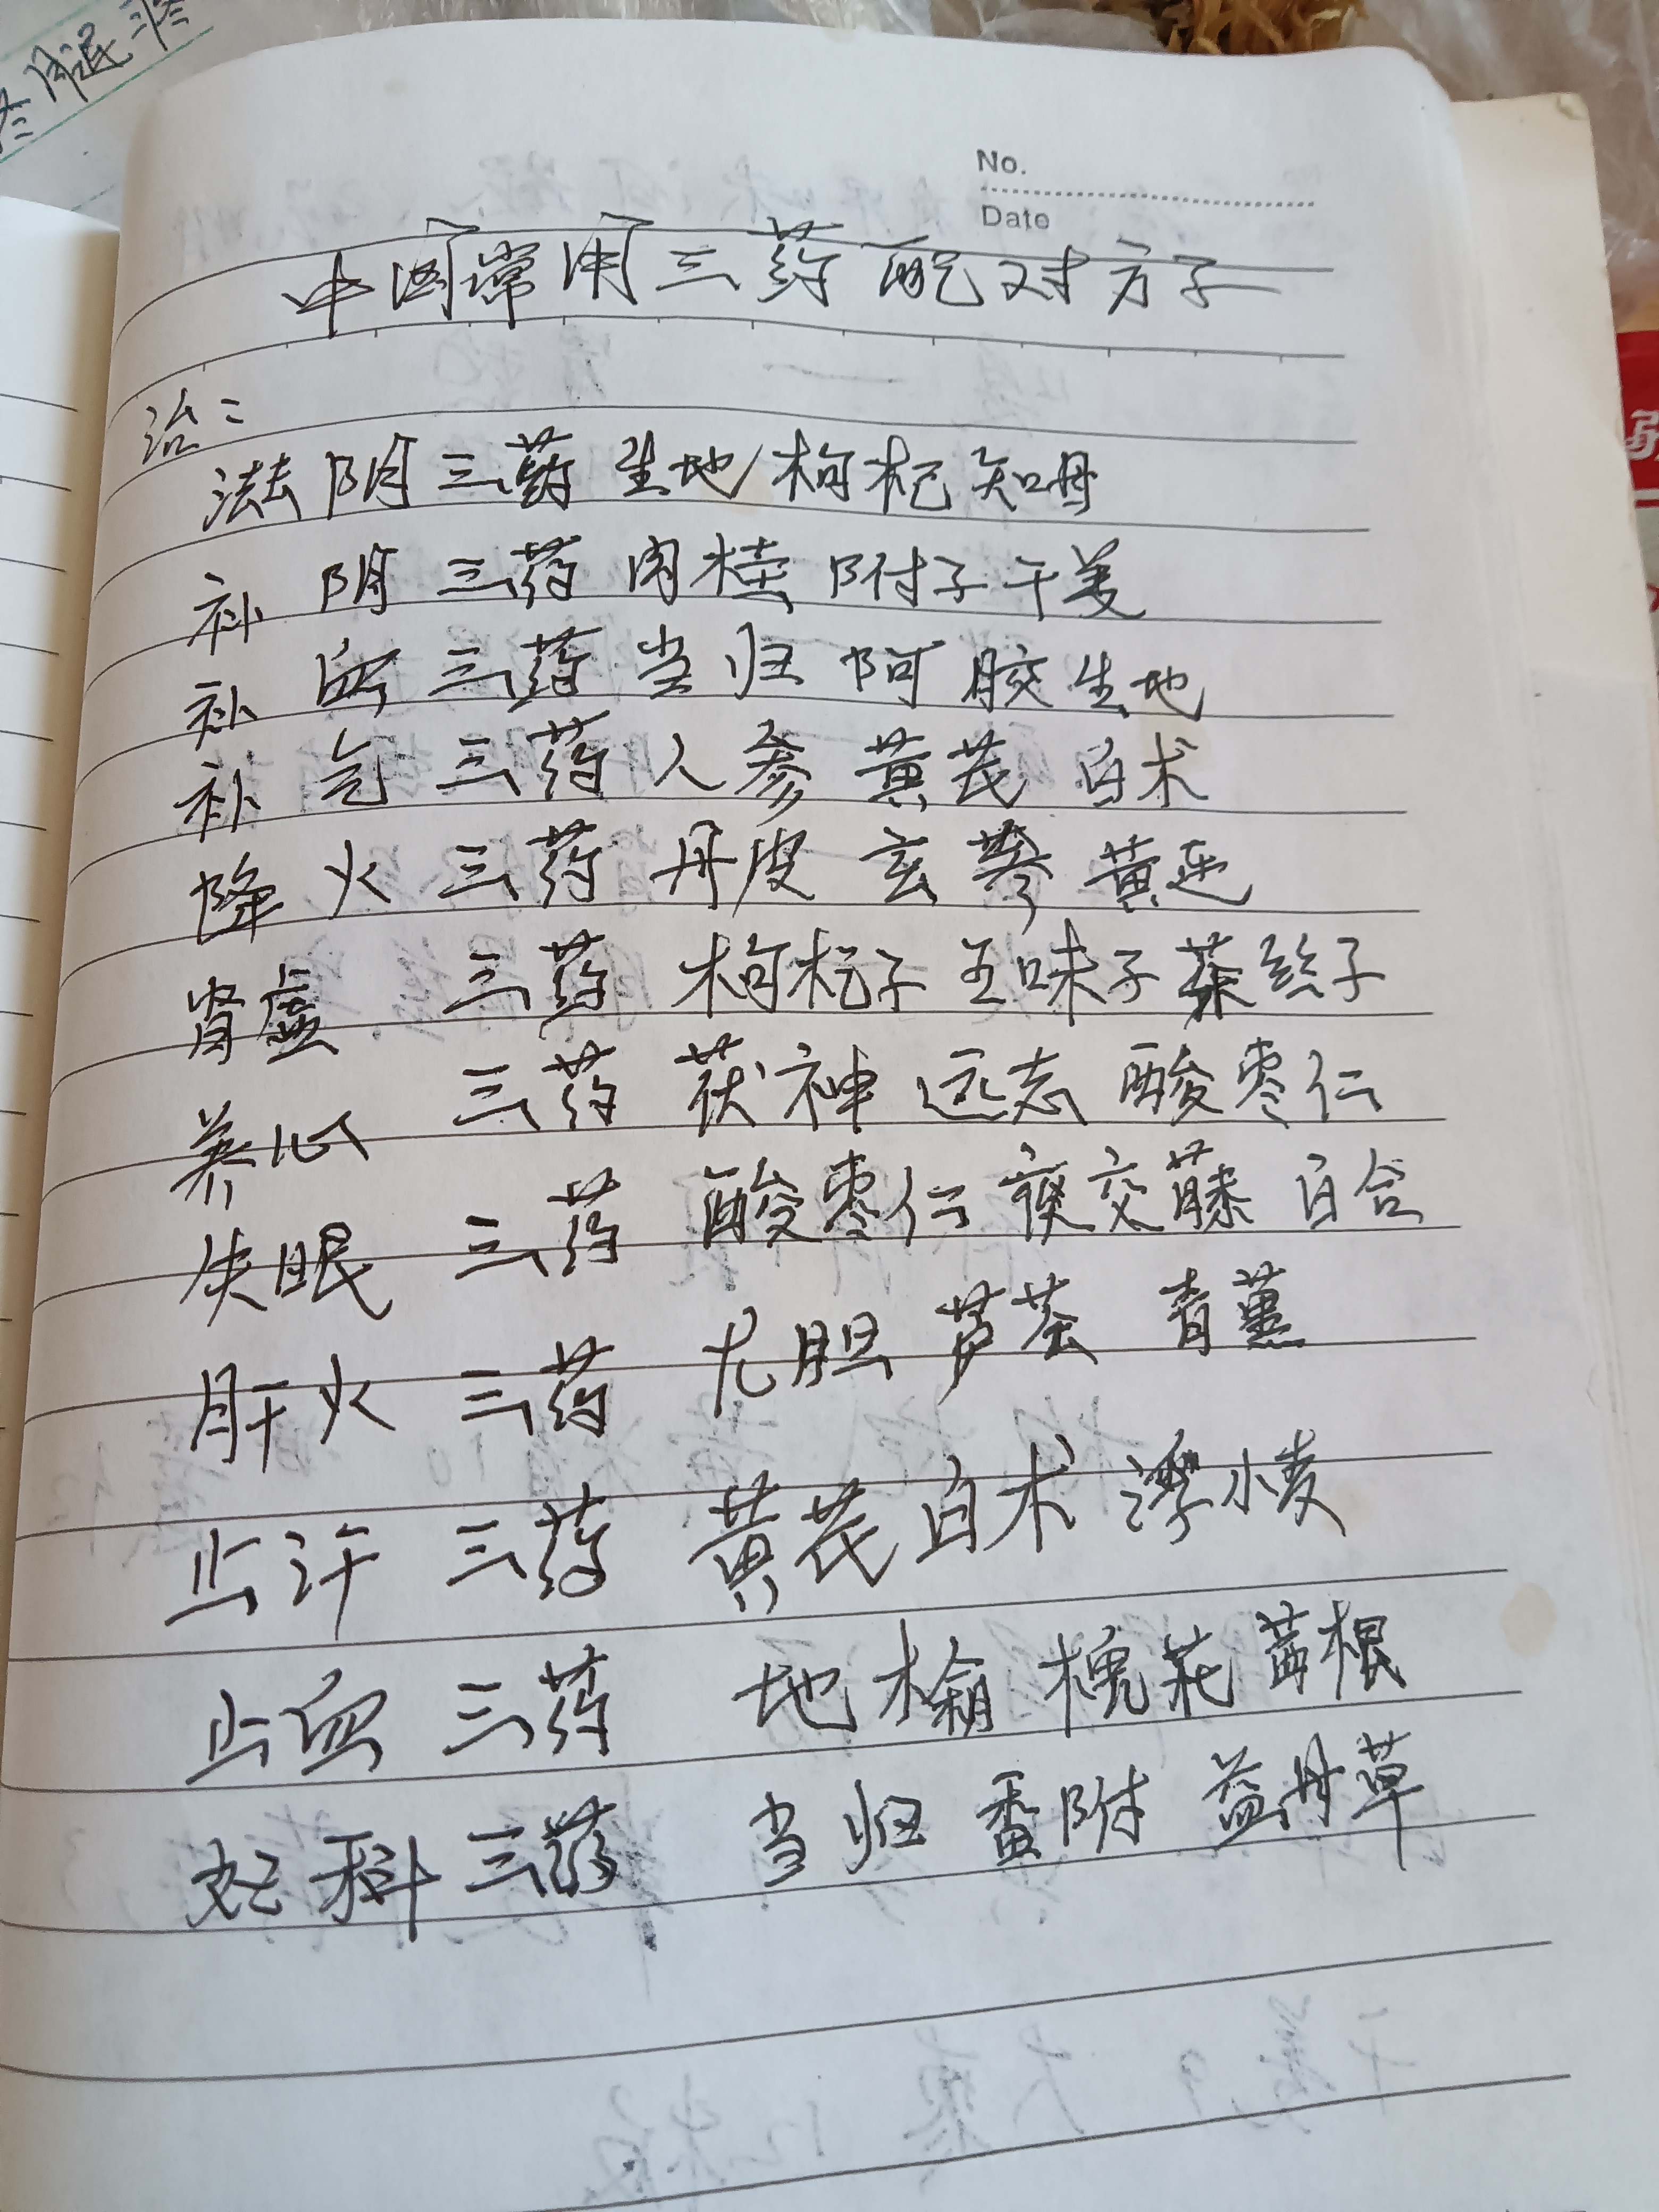 No.
Date
中国常用三药配对方子
治:
滋阴三药 生地 枸杞 知母
补阴三药 肉桂 附子 干姜
补血三药 当归 阿胶 生地
补气三药 人参 黄芪 白术
降火三药 丹皮 玄参 黄连
肾虚 三药 枸杞子 五味子 菟丝子
养心 三药 茯神 远志 酸枣仁
失眠 三药 酸枣仁 夜交藤 百合
肝火 三药 龙胆 芦荟 青蒿
止汗 三药 黄芪 白术 浮小麦
止血 三药 地榆 槐花 茜根
妇科三药 当归 香附 益母草